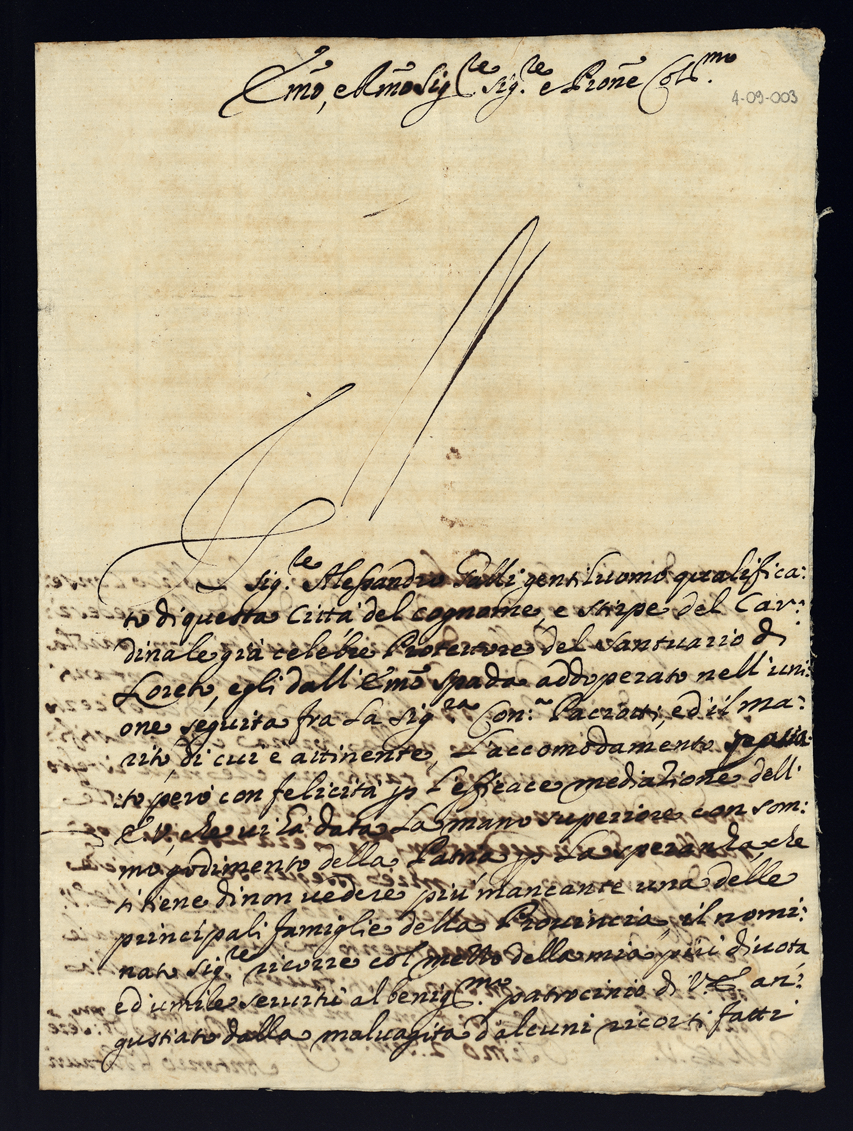 Emõ, e Rmõ Sig.re Sig.re e Pronẽ Col.mo
4-09-003
Il Sig.re Alessandro Galli gentiluomo qualifica:
to di questa Città del cognome, e stirpe del Car:
dinale già celebre Protettore del Santuario di
Loreto, egli dall'Emõ Spada addoperato nell'uni:
one seguita fra la Sig.ra Con.a Paciotti, ed il ma:
rito, di cui e attinente, l'accomodamento
to però con felicità p l'efficace mediazione dell'
E.V. che vi hà data la mano superiore con som:
mo godimento della Patria p la speranza che
si tiene di non vedere più mancante una delle
principali famiglie della Provincia, il nomi:
nato Sig.re ricorre col mezzo della mia più divota
ed umile servitù al benig.mo patrocinio di V.E. an:
gustiato dalla malvagità d'alcuni ricorsi fatti